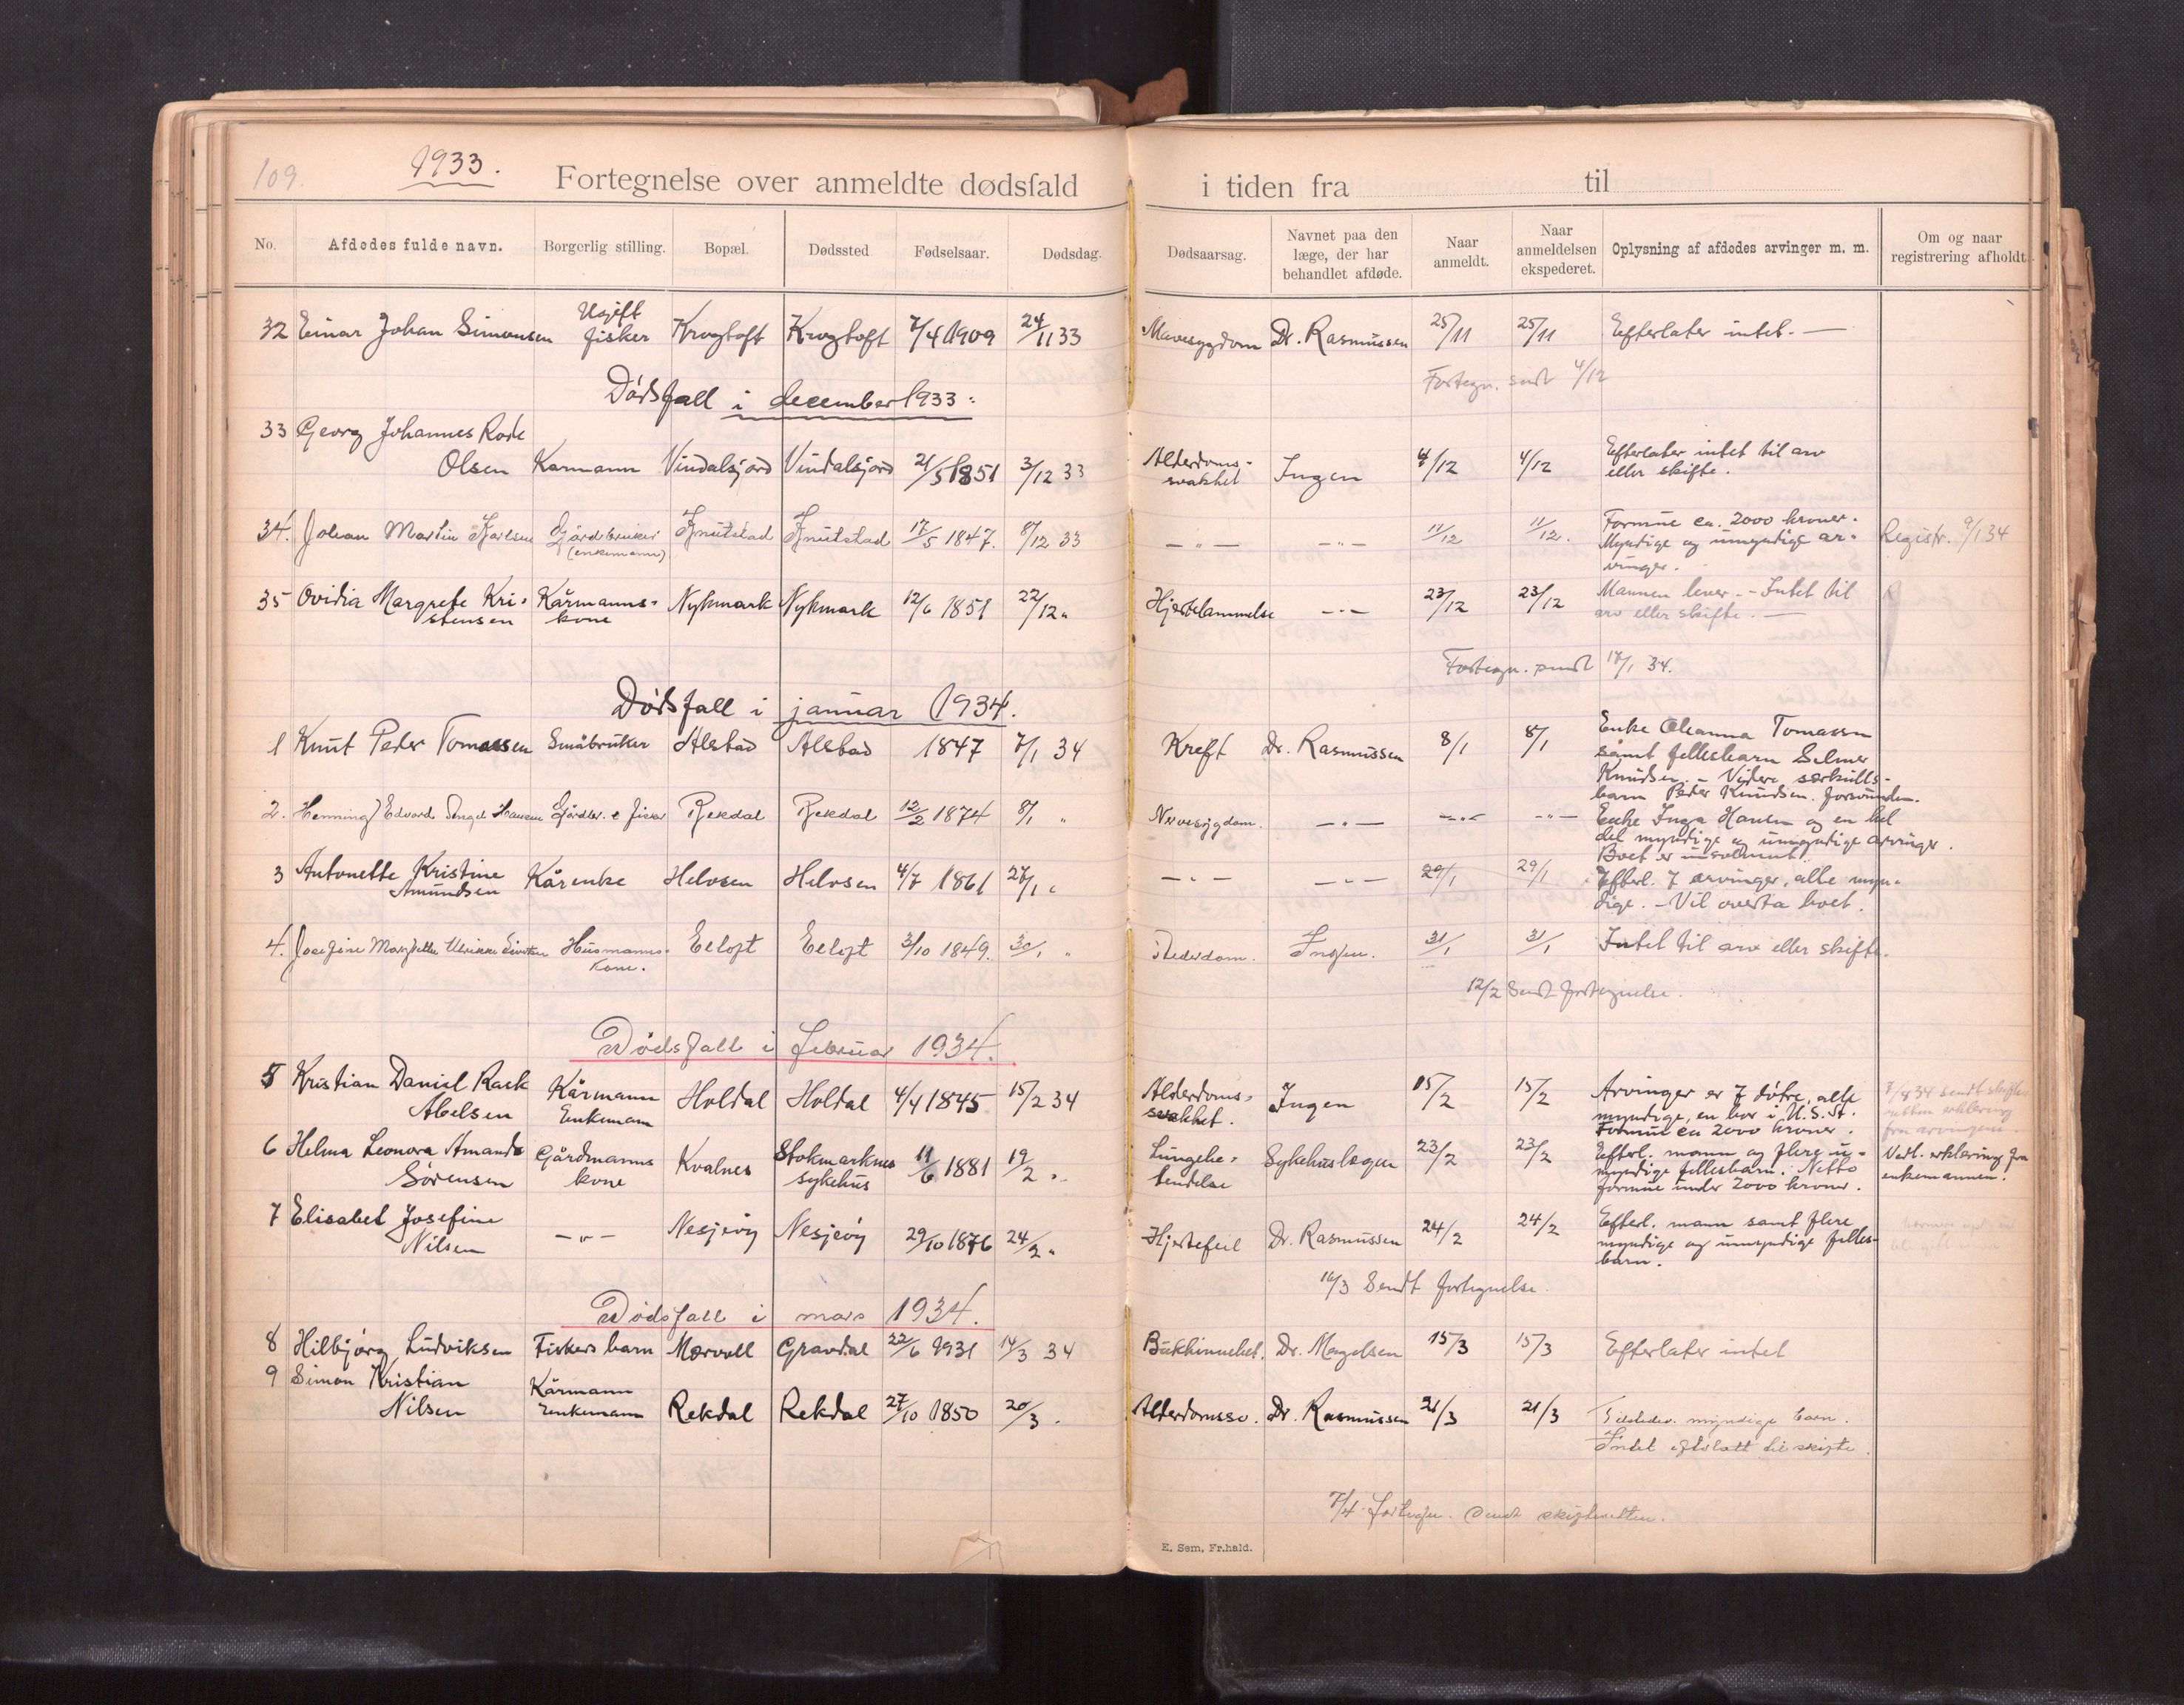 109.
1933.
Fortegnelse over anmeldte dødsfald i tiden fra til
No. Afdødes fulde navn. Borgerlig stilling. Bopæl. Dødssted Fødselsaar. Dødsdag. Dødsaarsag. Navnet paa den læge, der har behandlet afdøde. Naar anmeldt. Naar anmeldelsen ekspederet. Oplysning af afdødes arvinger m. m. Om og naar registrering afholdt.
Ugift
32 Einar Johan Simonsen fisker Krogtoft Krogtoft 7/4 1909 24/11 33 Mavesygdom Dr. Rasmussen 25/11 25/11 Efterlater intet. —
Fortegn. sendt 4/12
Dødsfall i december 1933.
33 Georg Johannes Rode
Olsen Karmann Vindalsjord Vindalsjord 21/5 1851 3/12 33 Alderdoms- Ingen 4/12 4/12 Efterlater intet til arv
svakhet eller skifte.
34. Johan Martin Gårdbruker Knutstad Knutstad 17/5 1847. 8/12 33 — " — — " — 11/12 11/12. Formue ca. 2000 kroner. Registr. 9/1 34
(enkemann) Myndige og umyndige ar-
vinger.
35 Ovidia Margrete Kri- Kårmanns- Nykmark Nykmark 12/6 1851 22/12 " Hjertelammelse — " — 23/12 23/12 Mannen lever. - Intet til
stensen kone arv eller skifte. —
Fortegn. sendt 17/1 34.
Dødsfall i januar 1934.
1 Knut Peder Tomassen Småbruker Alstad Alstad 1847 7/1 34 Kreft Dr. Rasmussen 8/1 8/1 Enke Oleanna Tomassen
samt fellesbarn Selmer
Knudsen. - Videre særkulls-
barn Peder Knudsen. forsvunden.
2. Henning Edvard Hansen Gårdbr. & fisker Rekdal Rekdal 12/2 1874 8/1 " Nervesygdom. — " — — " — — " — Enke Inga Hansen og en hel
del myndige og umyndige arvinger.
Boet er insolvent.
3 Antonette Kristine Kårenke Helosen Helosen 4/7 1861 27/1 " — " — — " — 29/1 29/1 Efterl. 7 arvinger, alle myn-
Amundsen dige. - Vil overta boet.
4. Josefine Ulrikke Husmanns- Eltoft Eltoft 3/10 1849. 30/1 " Alderdom. Ingen. 31/1 31/1 Intet til arv eller skifte.
kone.
12/2 Sendt fortegnelse.
Dødsfall i februar 1934.
5 Kristian Daniel Rack Kårmann Holdal Holdal 4/4 1845 15/2 34 Alderdoms- Ingen 15/2 15/2 Arvinger er 7 døtre, alle 34 sendt skifte-
Abelsen Enkemann svakhet. myndige, en bor i U.S.A. retten erklæring
Formue ca 2000 kroner. fra arvingene.
6 Helma Leonora Amanda Gårdmanns Kvalnes Stokmarknes 11/6 1881 19/2 " Lungebe- Sykehuslegen 23/2 23/2 Efterl. mann og flere u- Vedl. erklæring fra
Sørensen kone sykehus tendelse myndige fellesbarn. Netto enkemannen.
formue under 2000 kroner.
7 Elisabet Josefine — " — Nesjeøy Nesjeøy 29/10 1876 24/2 " Hjertefeil Dr. Rasmussen 24/2 24/2 Efterl. mann samt flere
Nilsen myndige og umyndige felles-
barn.
16/3 Sendt fortegnelse
Dødsfall i mars 1934.
8 Hilbjørg Ludviksen Fiskers barn Mærvoll Gravdal 22/6 1931 14/3 34 Bukhinnebet. Dr. 15/3 15/3 Efterlater intet
9 Simon Kristian Kårmann
Nilsen Enkemann Rekdal Rekdal 27/10 1850 20/3 . Alderdomssv. Dr. Rasmussen 21/3 21/3 myndige barn.
Intet efterlatt til skifte.
7/4 fortegn. sendt skifteretten.
E. Sem, Fr.hald.